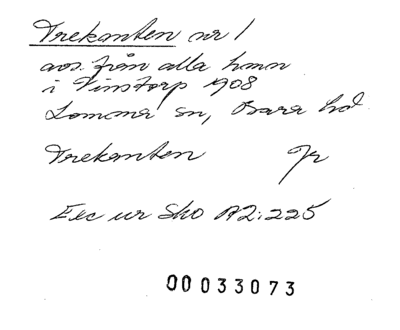 Trekanten nr 1
avs. från alla hmn
i Vinstorp 1908
Lomma sn, Bara hd
Trekanten Jr
Exc ur Sko A2:225
00033073